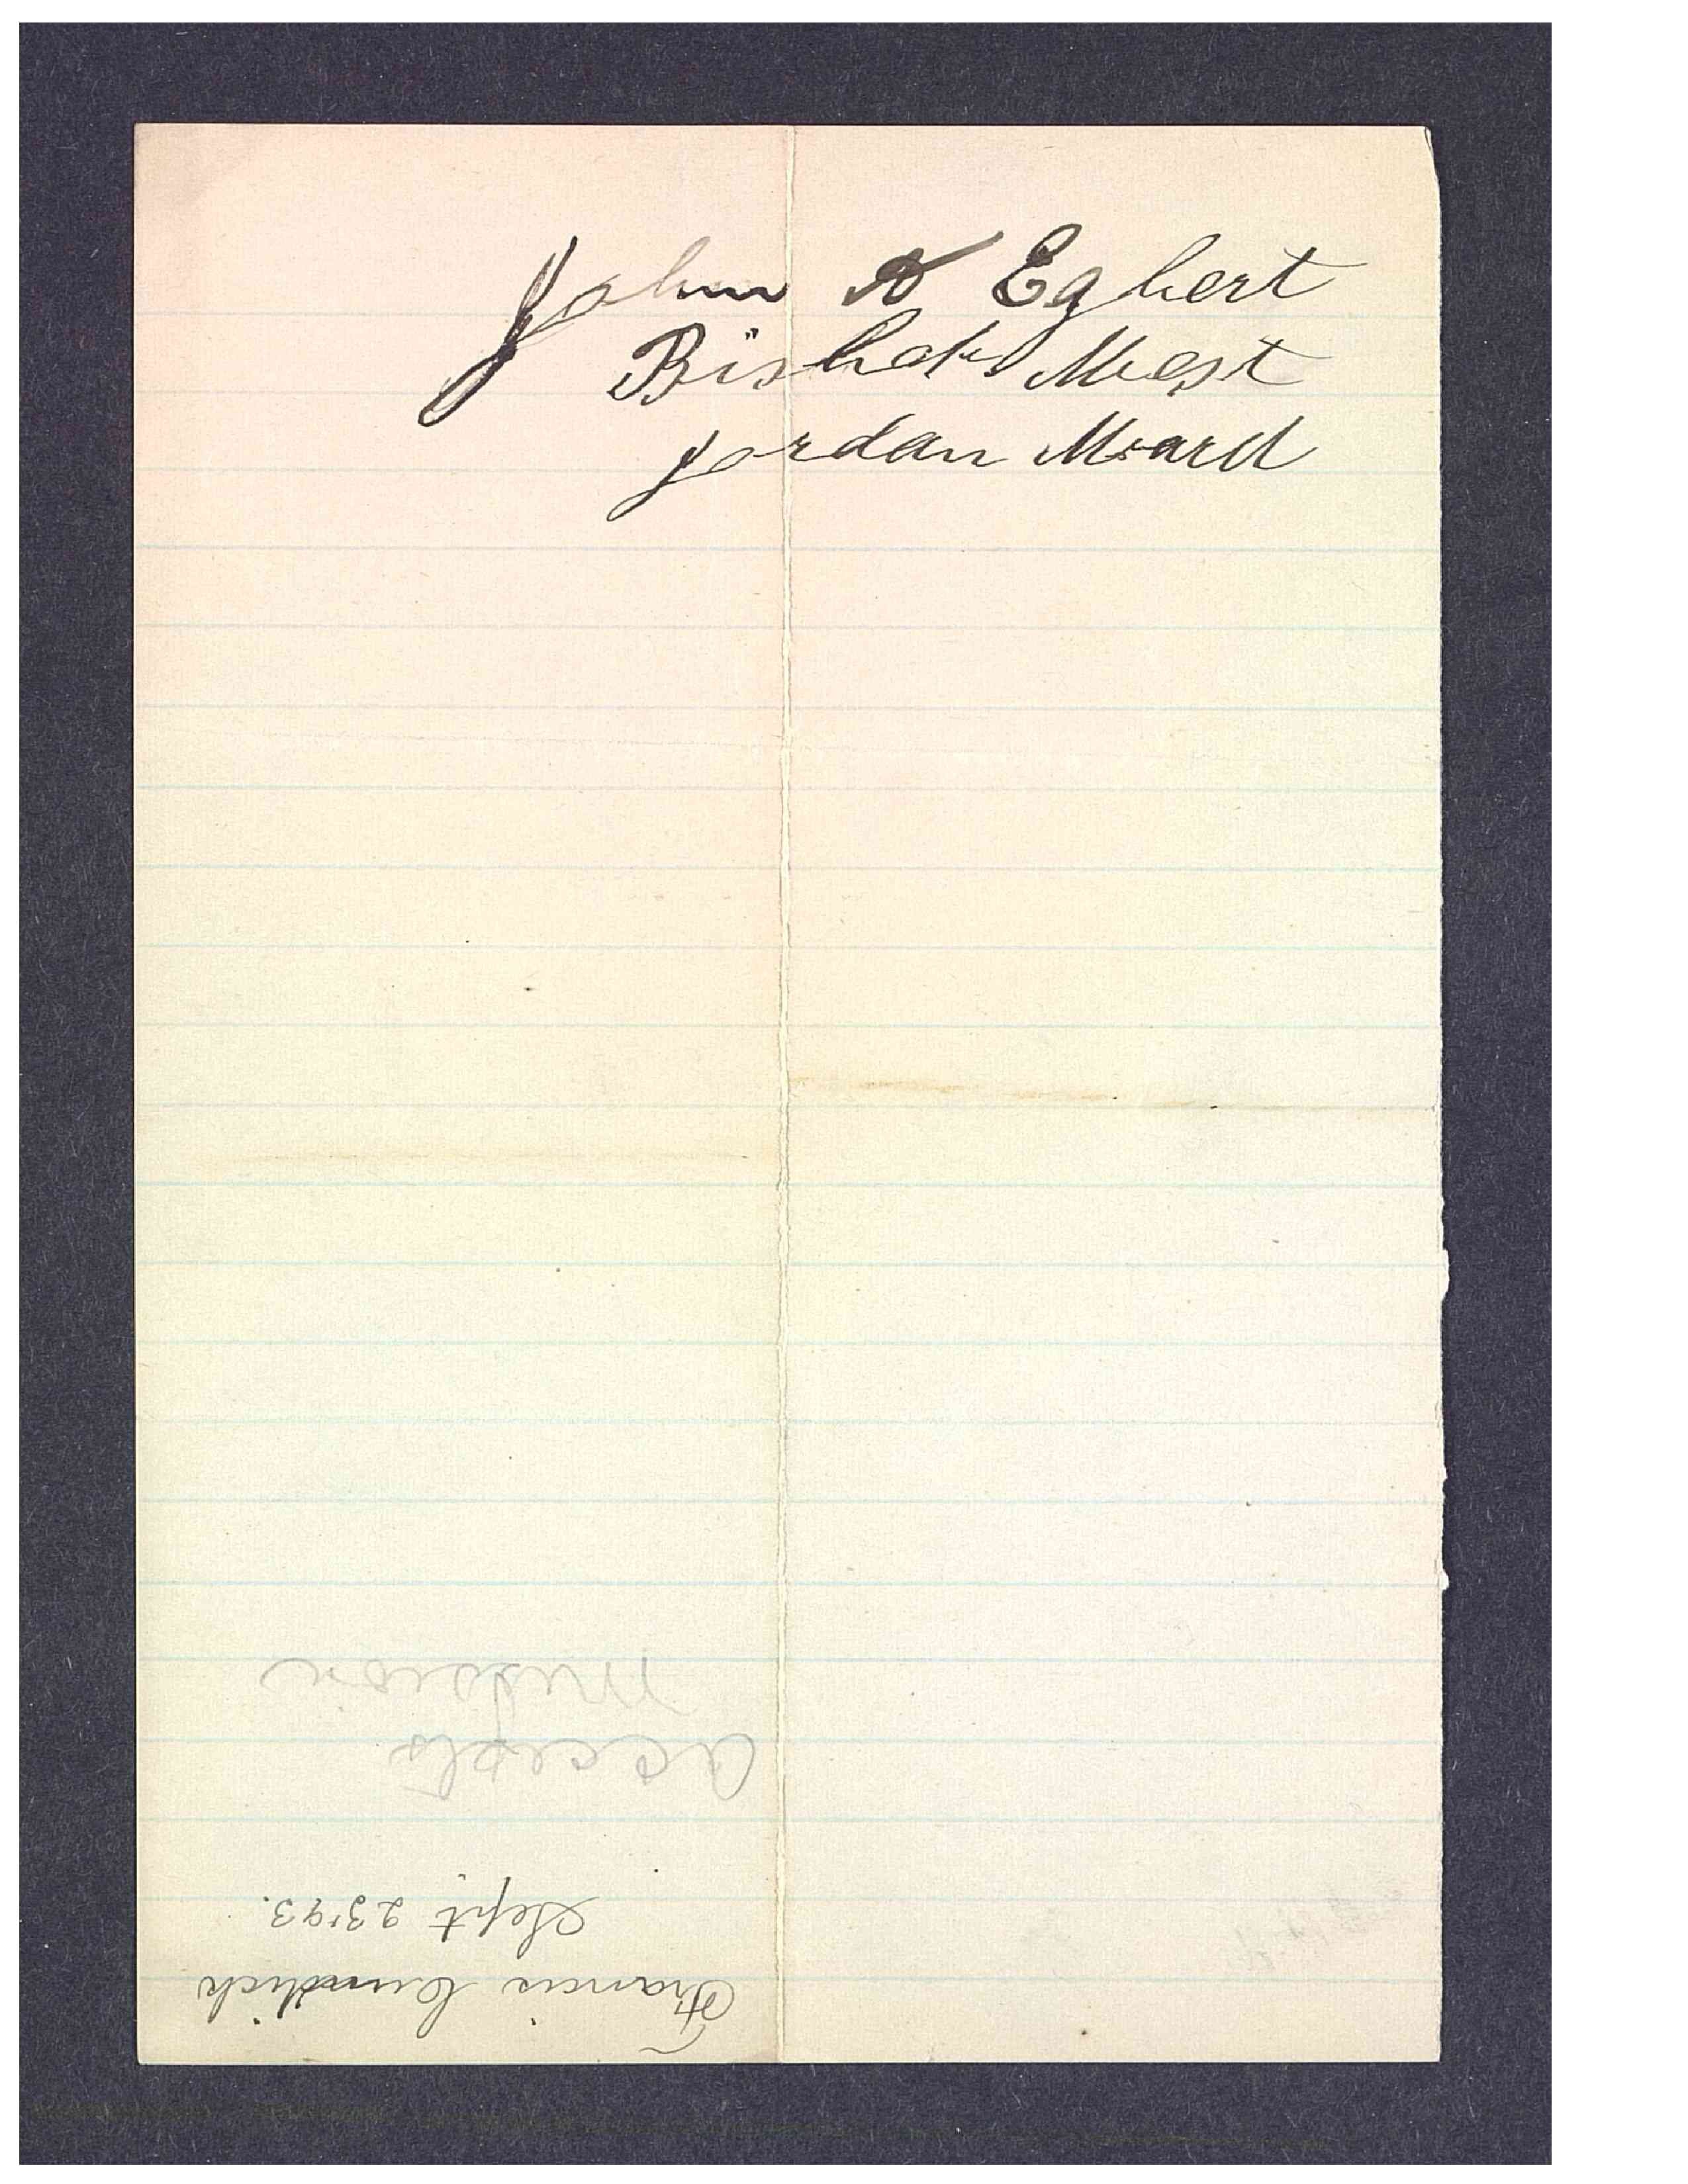 John A Egbert
Bishop West
Jordan Ward
Francis Cundick
Sept 23'93.
Accepts
Mission